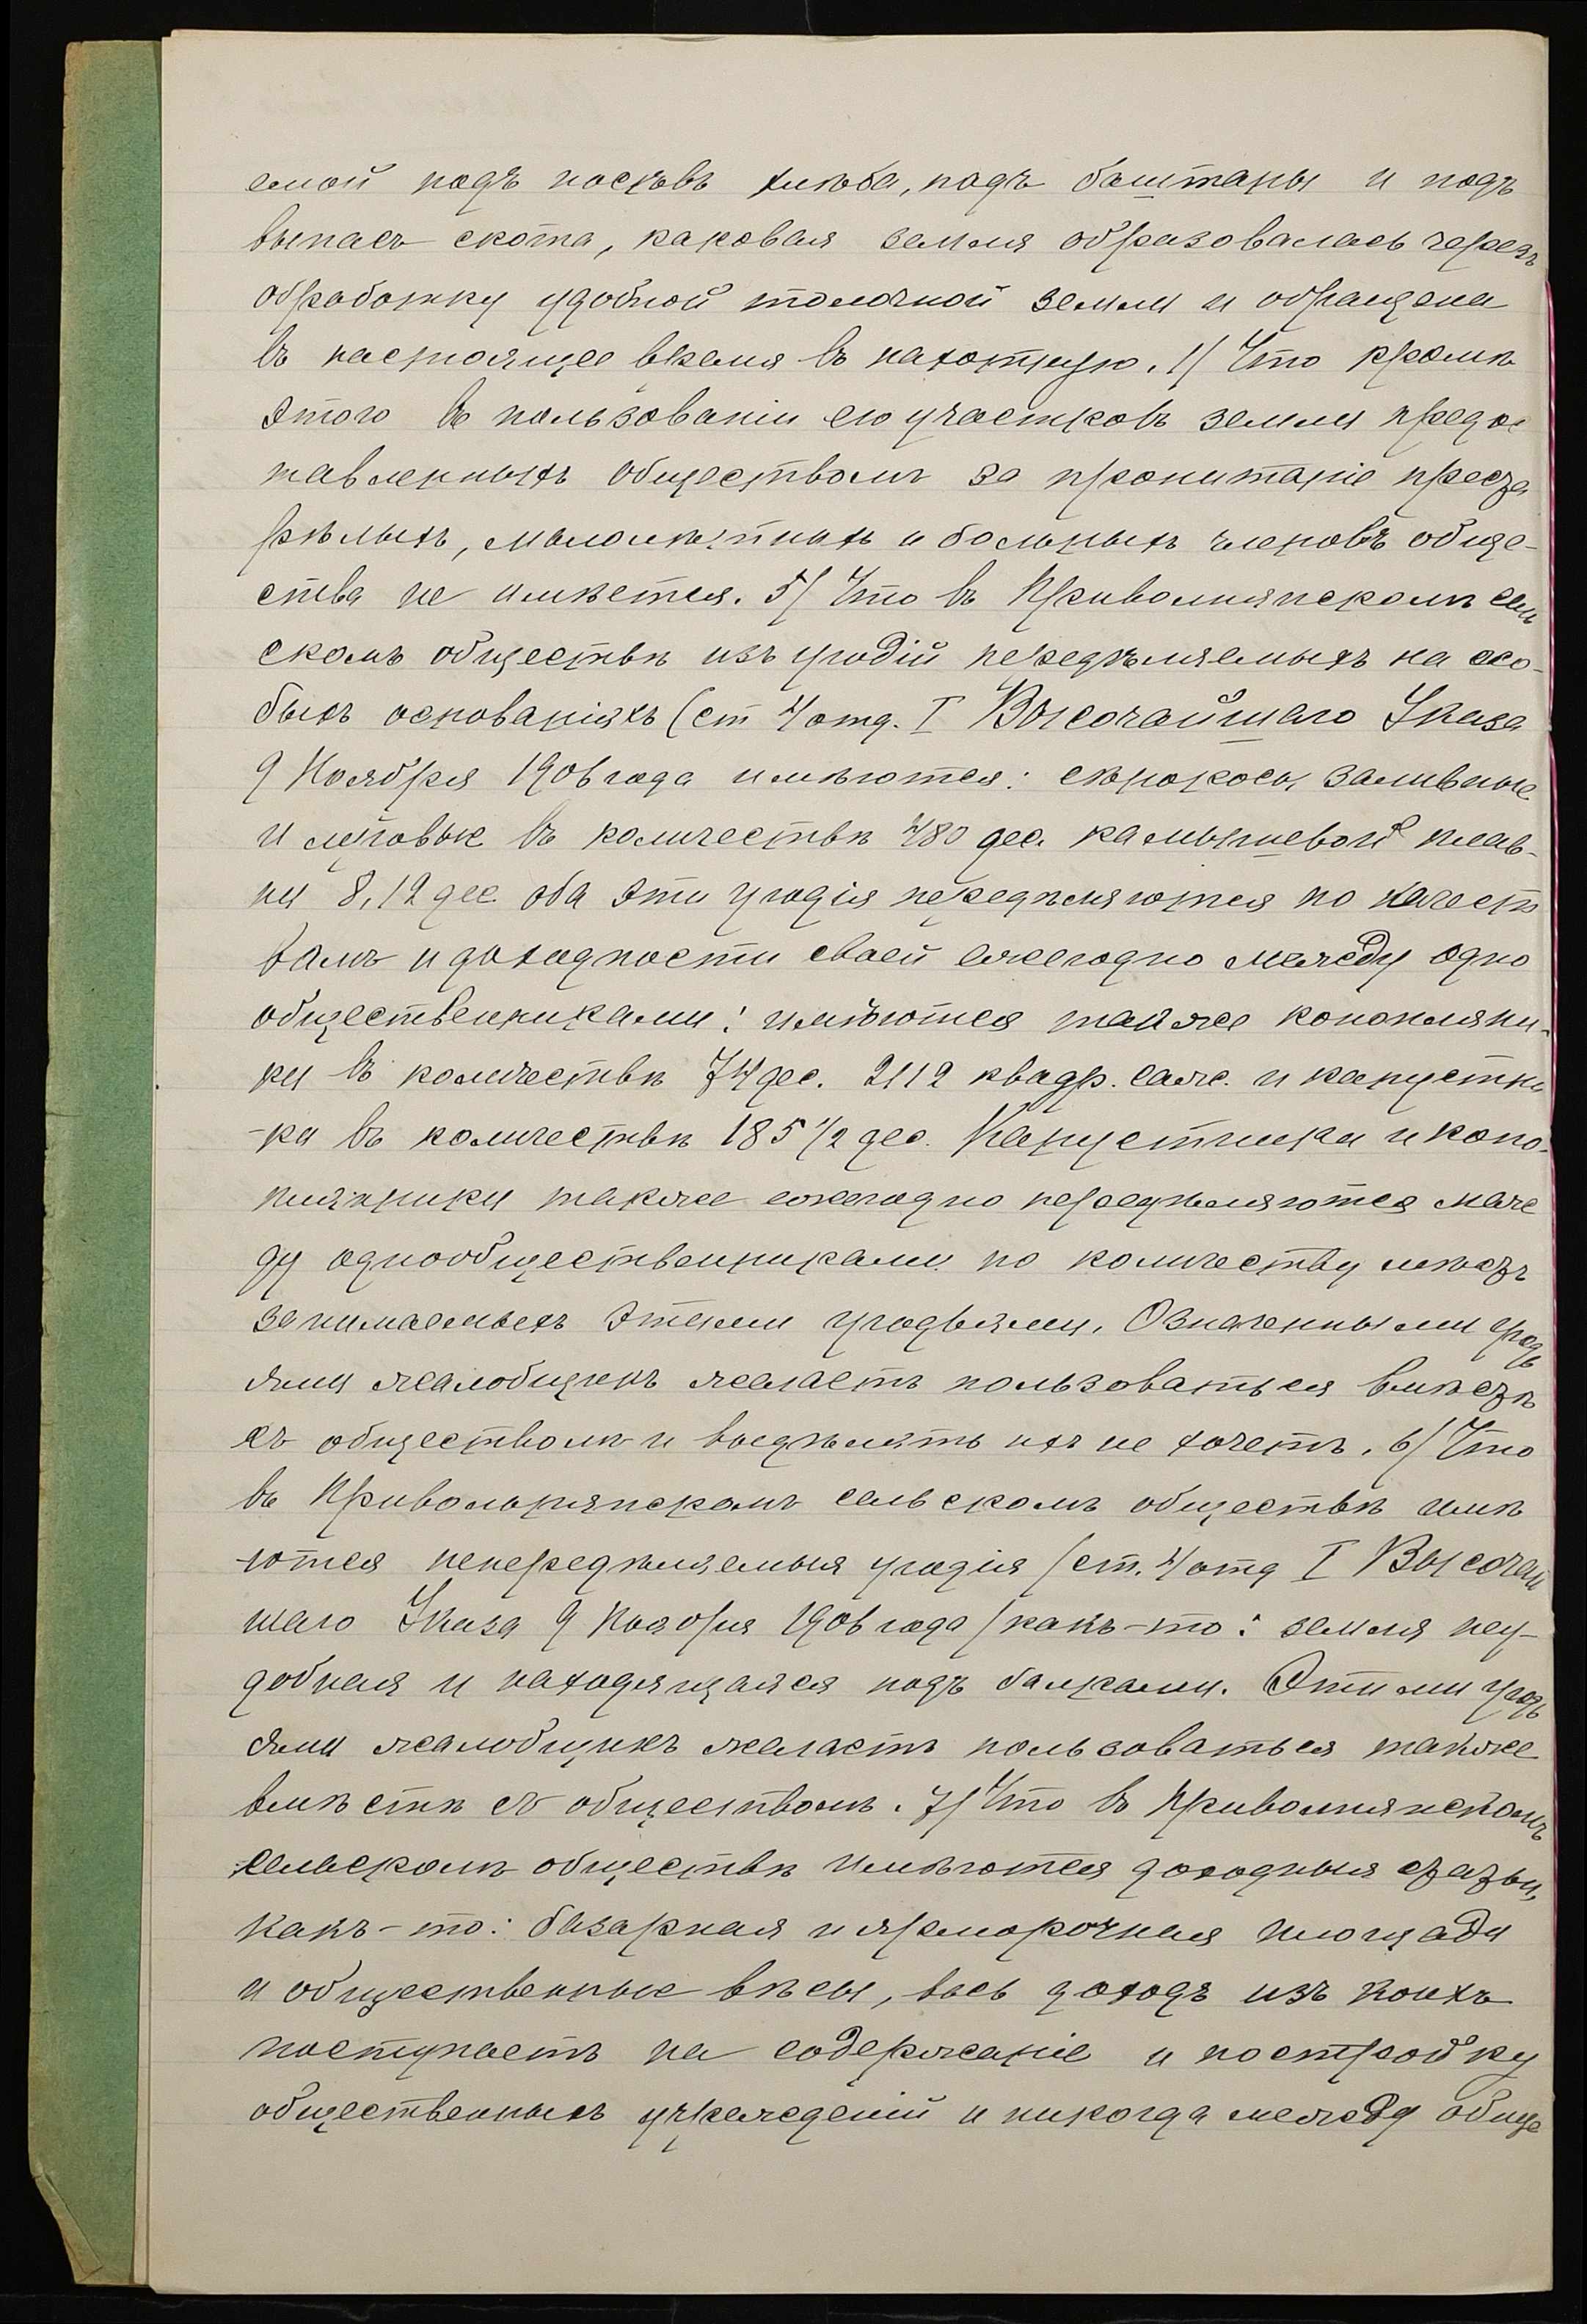 емой подъ посѣвъ хлѣба, подъ баштаны и подъ
выпасъ скота, каковая земля образовалась черезъ
обработку удобной толочной земли и обращена
въ настоящее время въ пахотную. 4/ Что кромѣ
этого въ пользованіи его участковъ земли предос
тавленныхъ обществомъ за пропитаніе преста
рѣлыхъ, малолѣтнихъ и больныхъ членовъ обще-
ства не имѣется. 5/ Что въ Привольнянскомъ сель
скомъ обществѣ изъ угодій передѣляемыхъ на осо-
быхъ основаніяхъ (ст 4 отд. I Высочайшаго Указа
9 Ноября 1906 года имѣются: сѣнокосы заливные
и луговые въ количествѣ 480 дес. камышевой плав-
ни 8,12 дес. оба эти угодія передѣляются по качест
вамъ и доходности своей ежегодно между одно
общественниками; имѣются также коноплянни-
ки въ количествѣ 74 дес. 2112 квадр. саж. и капустни
-ка въ количествѣ 185 1/2 дес. Капустники и коно-
плянники также ежегодно передѣляются меж
ду однообщественниками по количеству мѣстъ
занимаемыхъ этими угодьями. Означенными угодь
ями жалобщикъ желаетъ пользоваться вмѣстѣ
съ обществомъ и выдѣлять ихъ не хочетъ. 6/ Что
въ Привольнянскомъ сельскомъ обществѣ имѣ
-ются непередѣляемыя угодія (ст. 4 отд I Высочай
шаго Указа 9 Ноября 1906 года) какъ-то: земля неу-
добная и находящаяся подъ балками. Этими угодь
ями жалобщикъ желаетъ пользоваться также
вмѣстѣ съ обществомъ. 7/ Что въ Привольнянскомъ
сельскомъ обществѣ имѣются доходныя статьи,
какъ-то: базарная и ярморочная площади
и общественные вѣсы, весь доходъ изъ коихъ
поступаетъ на содержаніе и постройку
общественныхъ учрежденій и никогда между обще